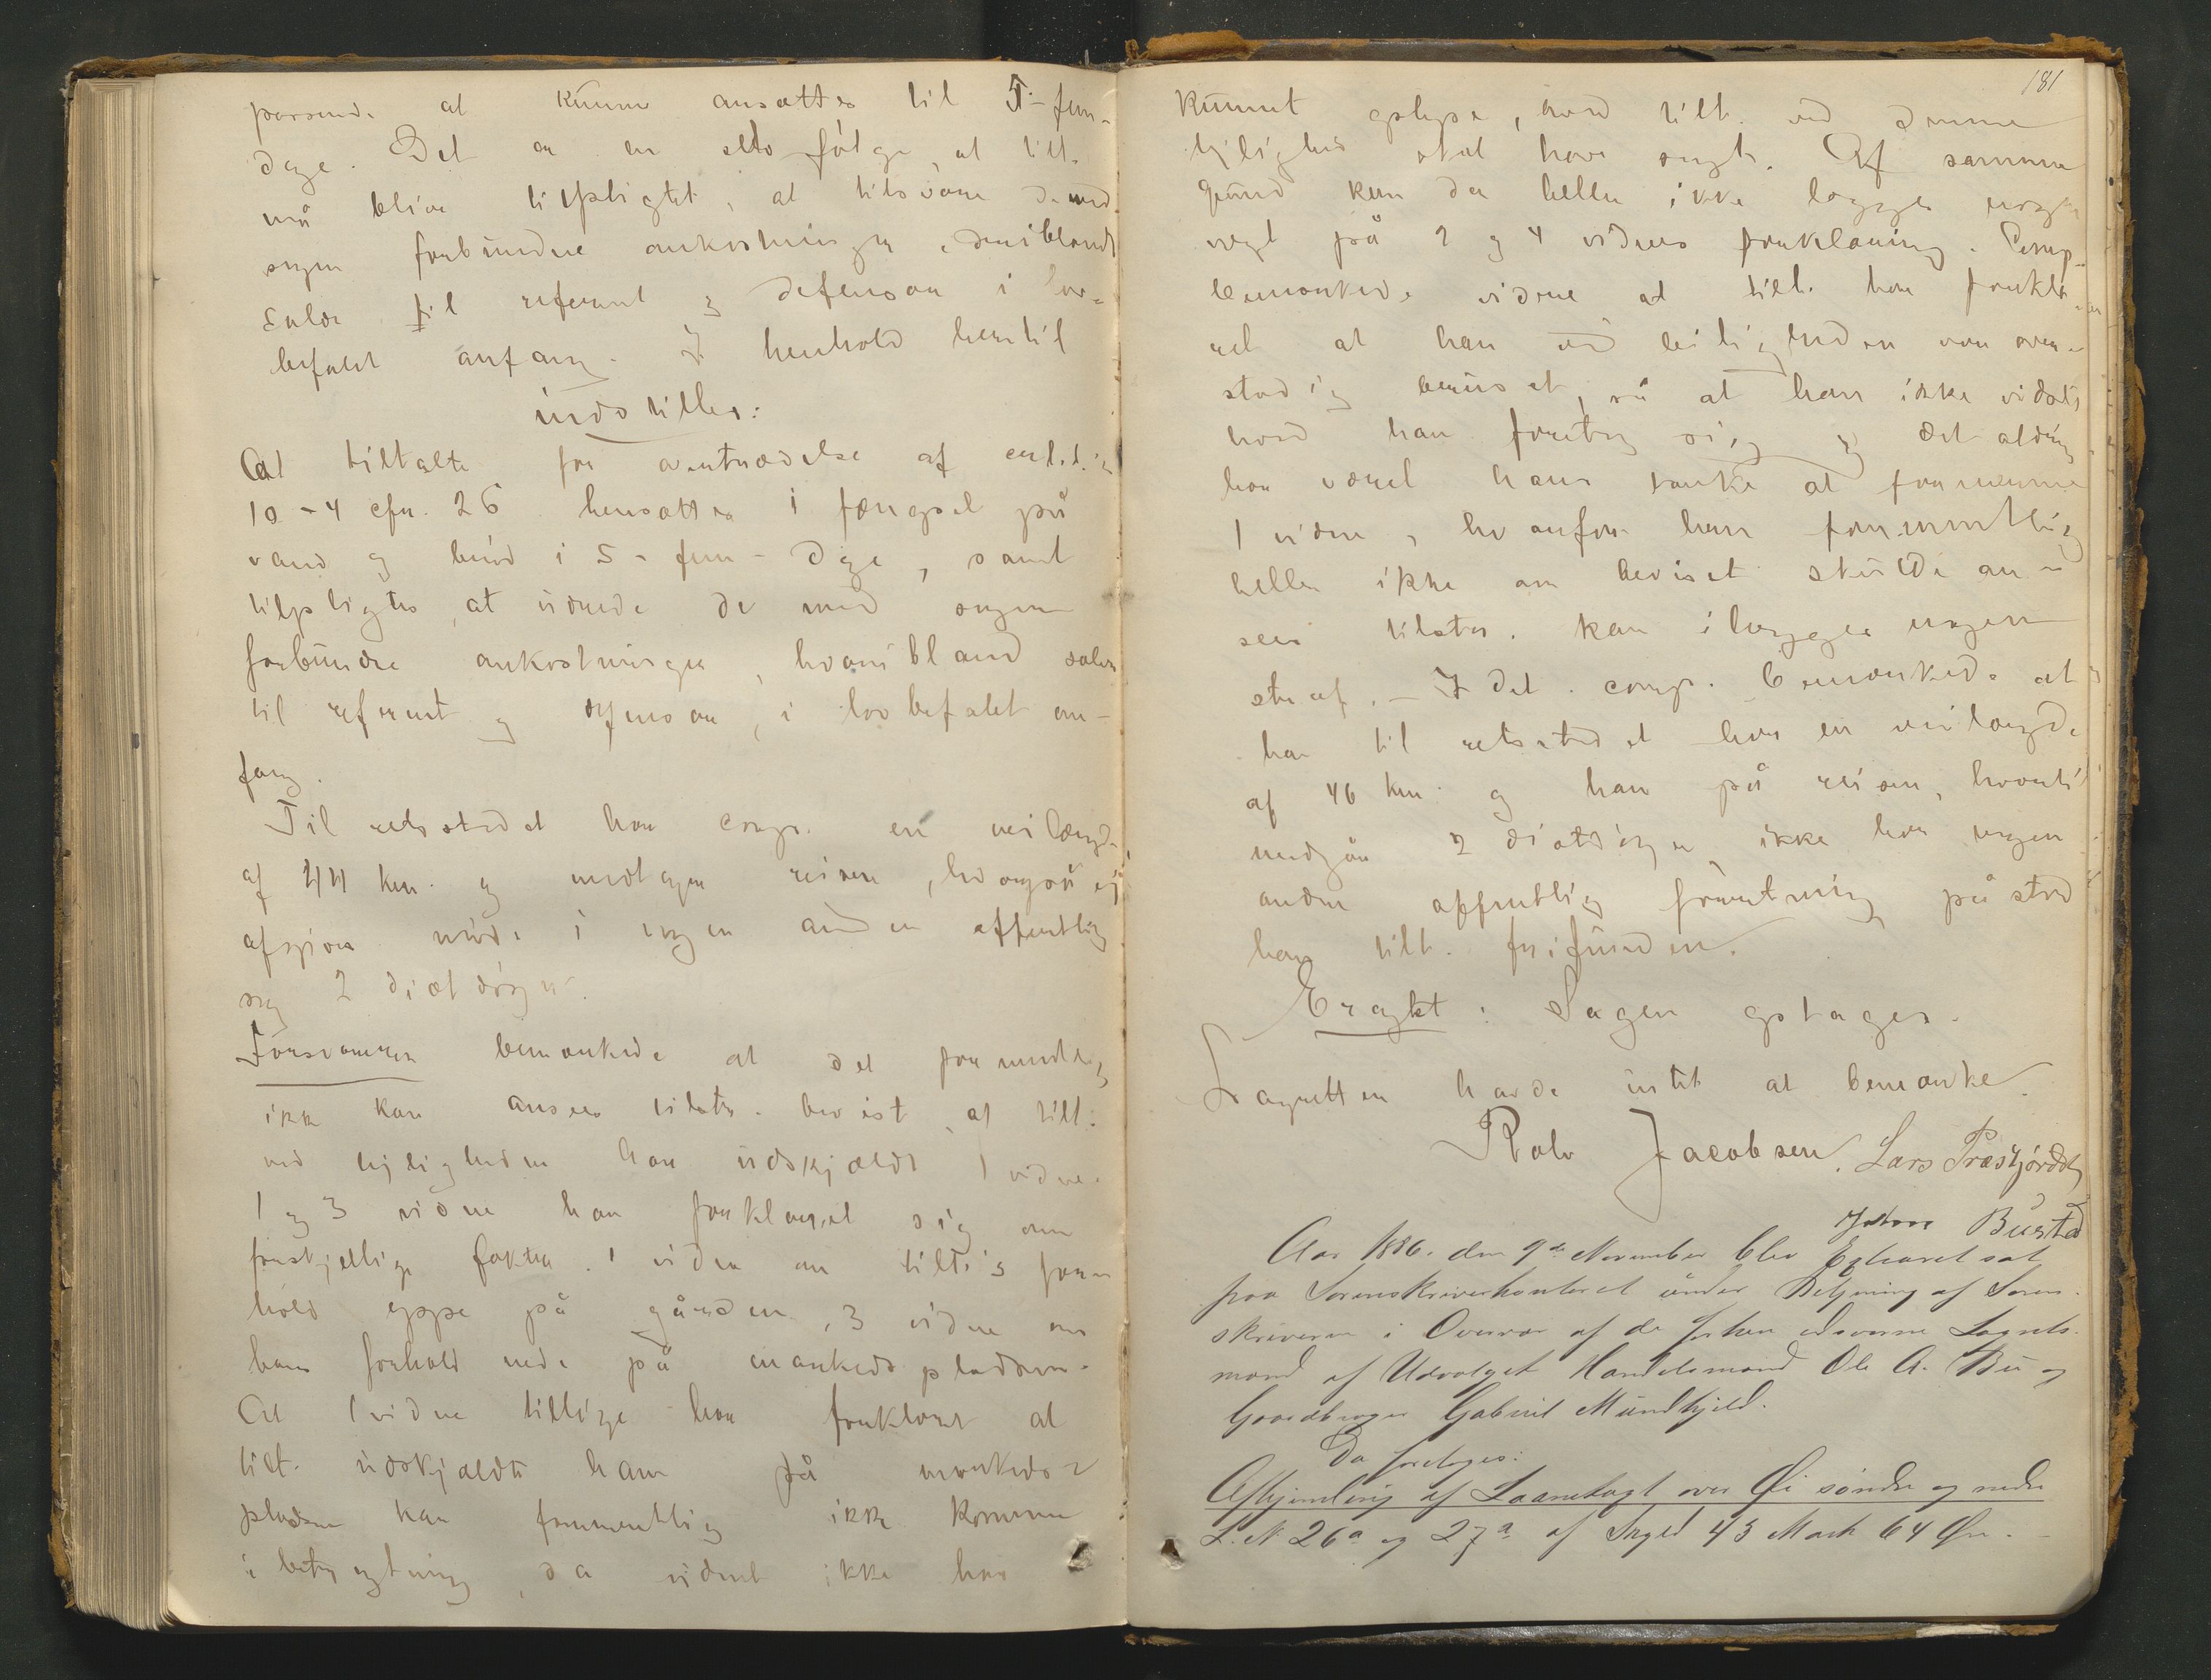 passende at kunne ansættes til 5 - fem -
dage. Det er en selvfølge, at tilt.
må blive tilpligtet, at tilsvare de med
sagen forbundne omkostninger, deriblandt
salær til referent og defensor i lov-
befalet omfang. I henhold hertil
indstilles:
At tiltalte for overtrædelse af
10 - 4 cfr. 26 hensættes i fængsel på
vand og brød i 5 - fem - dage, samt
tilpligtes, at udrede de med sagen
forbundne omkostninger, hvoribland salær
til referent og defensor, i lovbefalet om-
fang.
Til retsstedet har comp. en veilængde
af 44 km. og medtager reisen, hvorpå ej
afgjøres møde i nogen anden offentlig
sag 2 diætdøgn.
Forsvareren bemærkede at det formentlig
ikke kan ansees tilstr. bevist, at tilt.
ved lejligheden har udskjældt 1 vidne.
1 og 3 vidne har forklaret sig om
forskjellige fakta. 1 vidne om tilt's for-
hold oppe på gården, 3 vidne om
hans forhold nede på markedspladsen.
At 1 vidne tillige har forklaret at
tilt. udskjældte ham på markeds-
pladsen kan formentlig ikke komme
i betragtning, da vidnet ikke har
181
kunnet opløse, hvad tilt. ved denne
lejlighed skal have sagt. Af samme
grund kan der heller ikke lægges nogen
vægt på 2 og 4 vidnes forklaring. Comp.
bemærkede videre at tilt. har forkla-
ret at han ved leiligheden var over-
stadig beruset, så at han ikke vidste
hvad han foretog sig og det aldrig
har været hans tanke at fornærme
1 vidne, hvorfor han formentlig
heller ikke om beviset skulde an-
sees tilstr. kan ilægges nogen
straf. - Idet comp. bemærkede at
han til retsstedet har en veilængde
af 46 km. og han på reisen, hvortil
medgår 2 diætdøgn, ikke har nogen
anden offentlig forretning påstod
han tilt. frifunden.
Eragtet: Sagen optages.
Lagretten havde intet at bemærke.
Rolv Jacobsen. Lars Præstjordet
Johan Bustad
Aar 1886. den 9de November blev Extraret sat
paa Sorenskriverkontoret under Betjening af Soren-
skriveren i Overvær af de forhen edsvorne Lagrets-
mænd af Udvalget Handelsmand Ole A. Bu og
Gaardbruger Gabriel Mundhjeld.
Da foretoges:
Afhjemling af Laanetagt over Øi søndre og nedre
L. N 26a og 27a af Skyld 43 Mark 64 Øre. -